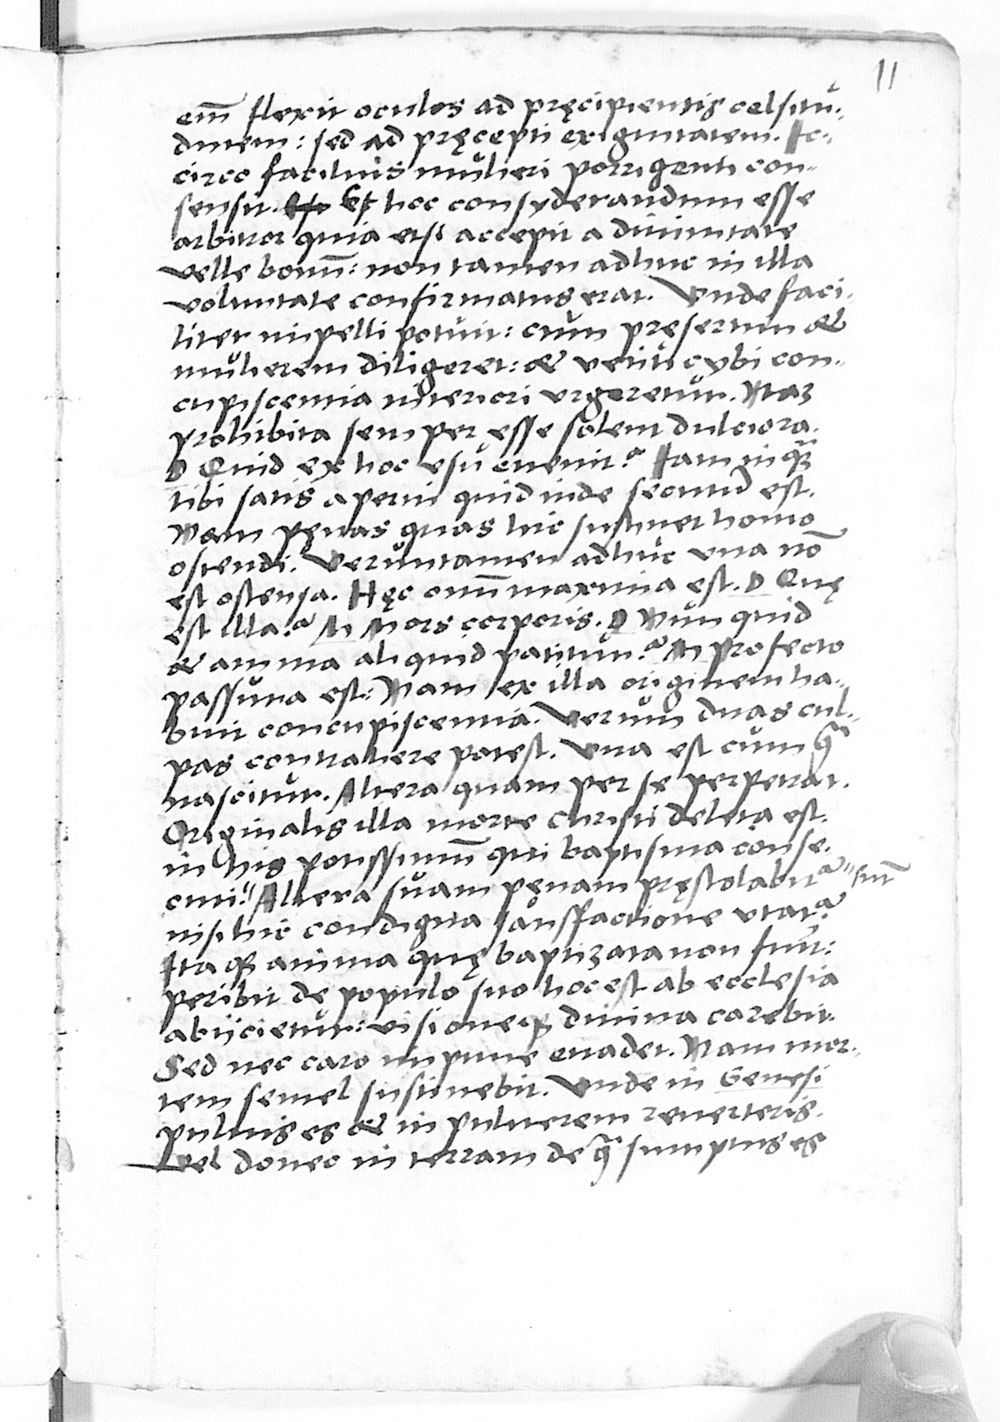 11
em̄ flexit oculos ad pręcipientis celsitu-
dinem: sed ad pręcepti exiguitatem. Ic-
circo facilius mulieri porrigenti con-
sensit. Et hoc consyderandum esse
arbitror quia etsi accepit a diuinitate
velle bonū: non tamen adhuc in illa
voluntate confirmatus erat. Vnde faci-
liter impelli potuit: cum pręsertim et
mulierem diligeret: et veluti cybi con-
cupiscentia interiori vrgeretur. Naz
prohibita semper esse solent dulciora.
D Quid ex hoc esu euenit? Iam inq̄
tibi satis aperui quid inde secutū est.
Nam pęnas quas hic sustinet homo
ostendi. Veruntamen adhuc vna nō
est ostensa. Hęc omiū maxima est. D Quę
est illa? M Mors corporis. D Nunquid
et anima aliquid patitur? M Profecto
passura est: Nam ex illa originem ha-
buit concupiscentia. Verum duas cul-
pas contrahere potest. Vna est cum q̄
nascitur. Altera quam per se perpetrat.
Originalis illa morte christi deleta est.
in his potissimū qui baptisma conse-
cuti sūt Altera suam pęnam pręstolabit᷑
nisi hic condigna satisfactione vtat᷑.
Itaq; anima quę baptizata non fuit:
peribit de populo suo hoc est ab ecclesia
abijcietur: visioneq; diuina carebit.
Sed nec caro impune euadet. Nam mor-
tem semel sustinebit. Vnde in Genesi
puluis es et in puluerem reuerteris.
Vel donec in terram de q̄ sumptus es